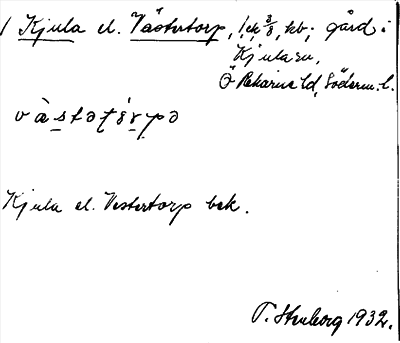 1 Kjula el. Västertorp, 1 ek 3/8, kb; gård i
Kjula sn,
Ö Rekarne hd, Söderm. l.
và̀stətɔ́rpə
Kjula el. Vestertorp bek.
T. Stenborg 1932.